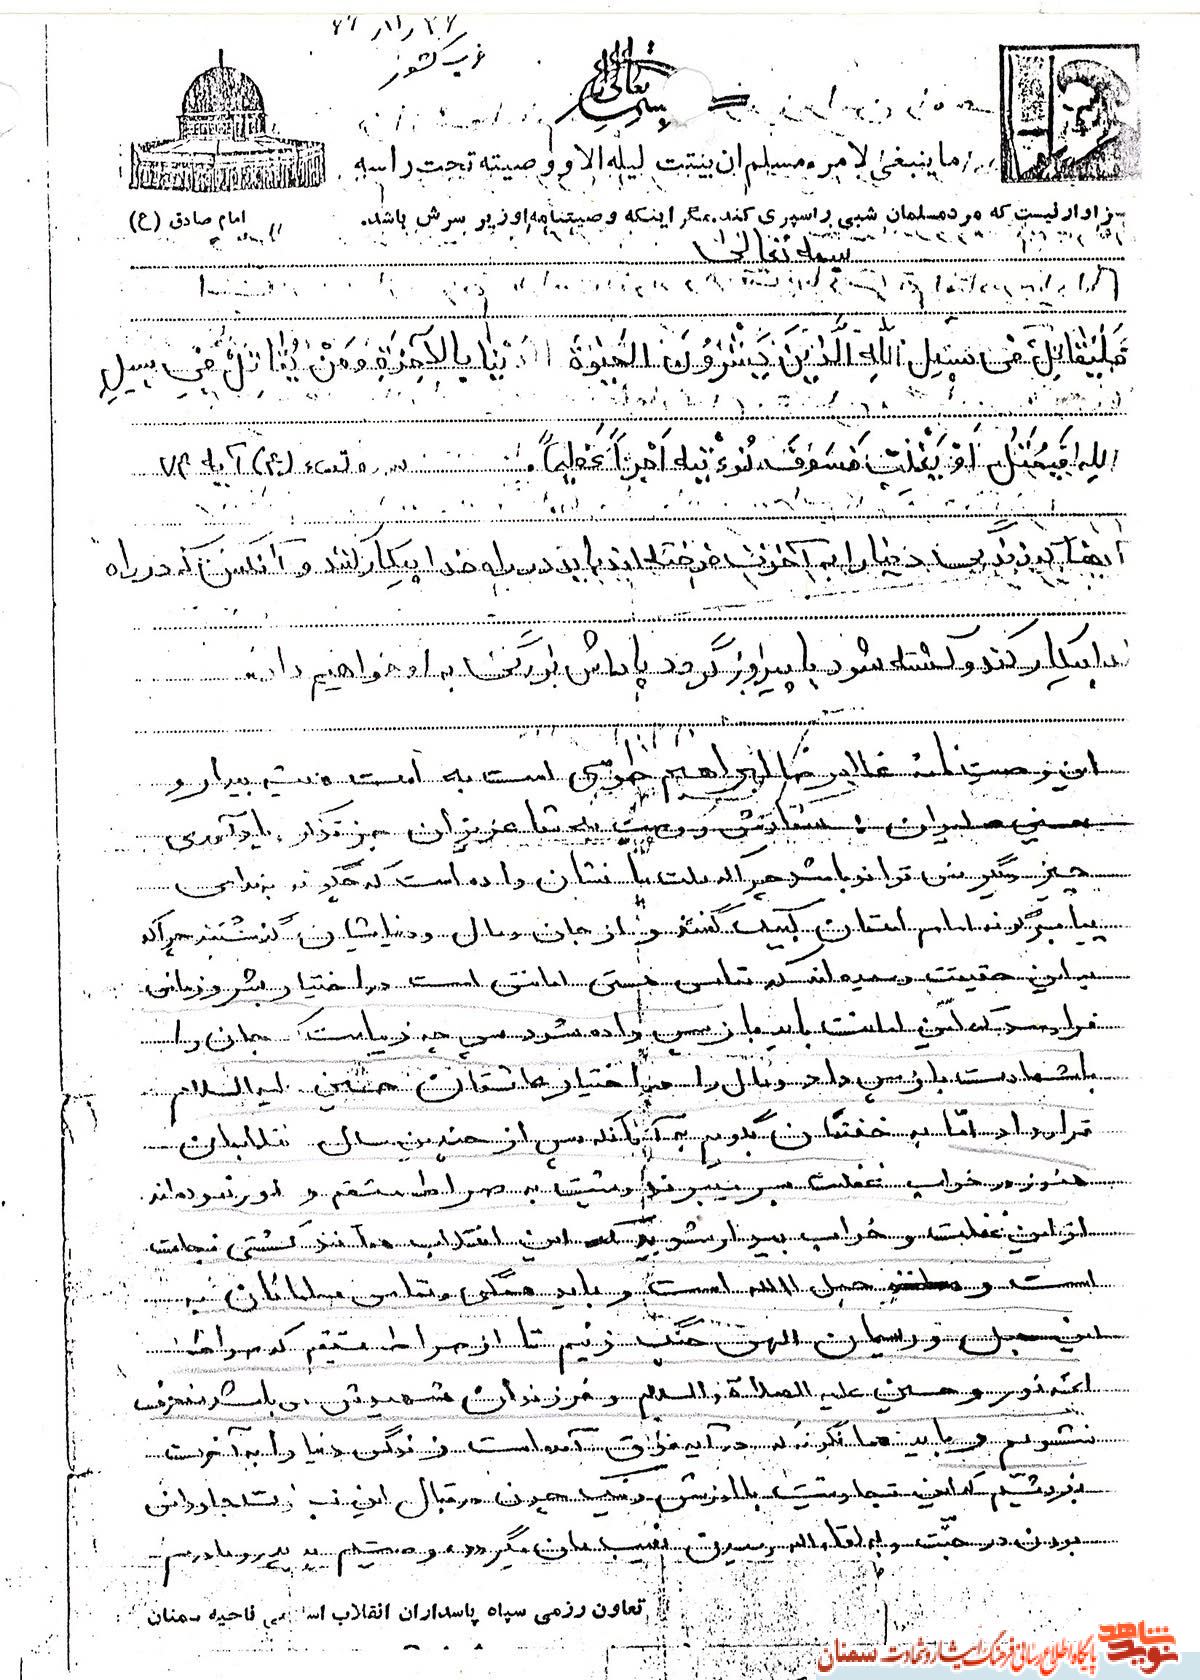 غرب کشور
بسمه تعالی
ما ینبغی لامرء مسلم ان یبیت لیله الا و وصیته تحت راسه
سزاوار نیست که مرد مسلمان شبی را سپری کند، مگر اینکه وصیتنامه او زیر سرش باشد.
امام صادق (ع)
بسمه تعالی
فَلیُقاتِل فی سَبیلِ اللهِ الَّذینَ یَشرُونَ الحَیوةَ الدُنیا بِالآخِرَةِ وَ مَنْ یُقاتِلْ فی سبیلِ
اللهِ فَیُقْتَل اَوْ یَغْلِبْ فَسَوفَ نُؤتیهِ اَجْراً عَظیماً. سوره نساء (۴) آیه ۷۴
آنها که زندگی دنیا را به آخرت فروخته اند باید در راه خدا پیکار کنند و آنکس که در راه
خدا پیکار کند و کشته شود یا پیروز گردد پاداش بزرگی به او خواهیم داد.
این وصیتنامه غلامرضا ابراهیم طوسی است به امت همیشه بیدار و
ایران سفارش و وصیت به شما عزیزان جز تذکر و یادآوری
چیز دیگر نمی تواند باشد چرا که ملت ما نشان داده است که چگونه به ندای
پیامبرگونه امامشان لبیک گفتند و از جان و مال و دنیایشان گذشتند چرا که
به این حقیقت رسیده اند که تمامی هستی امانتی است در اختیار بشر و زمانی
فرا رسد که این امانت باید باز پس داده شود پس چه زیباست که جان را
با شهادت باز پس داد و مال را در اختیار عاشقان حسین علیه السلام
قرار داد اما به خفتگان بگویم به آنانکه پس از چندین سال انقلابمان
هنوز در خواب غفلت بسر میبرند و پشت به صراط مستقیم و او نموده اند
از این غفلت و خواب بیدار شوید که این انقلاب همانند کشتی نجات
است و حبل الله است و باید همگی و تمامی مسلمانان به
این حبل و ریسمان الهی چنگ زنیم تا از صراط مستقیم که صراط
ائمه نور و حسین علیه الصلاة و السلام و فرزندان شهیدش می باشد منحرف
نشویم و باید همانگونه که در آیه فوق آمده است زندگی دنیا را به آخرت
بفروشیم که این تجارتیست باارزش چون در قبال این جاودانی
بودن در جنت و به لقاءالله رسیدن نصیبمان میگردد، وصیتم به پدر و مادرم
تعاون رزمی سپاه پاسداران انقلاب اسلامی ناحیه سمنان
نوید شاهد
پایگاه اطلاع رسانی فرهنگ ایثار و شهادت سمنان